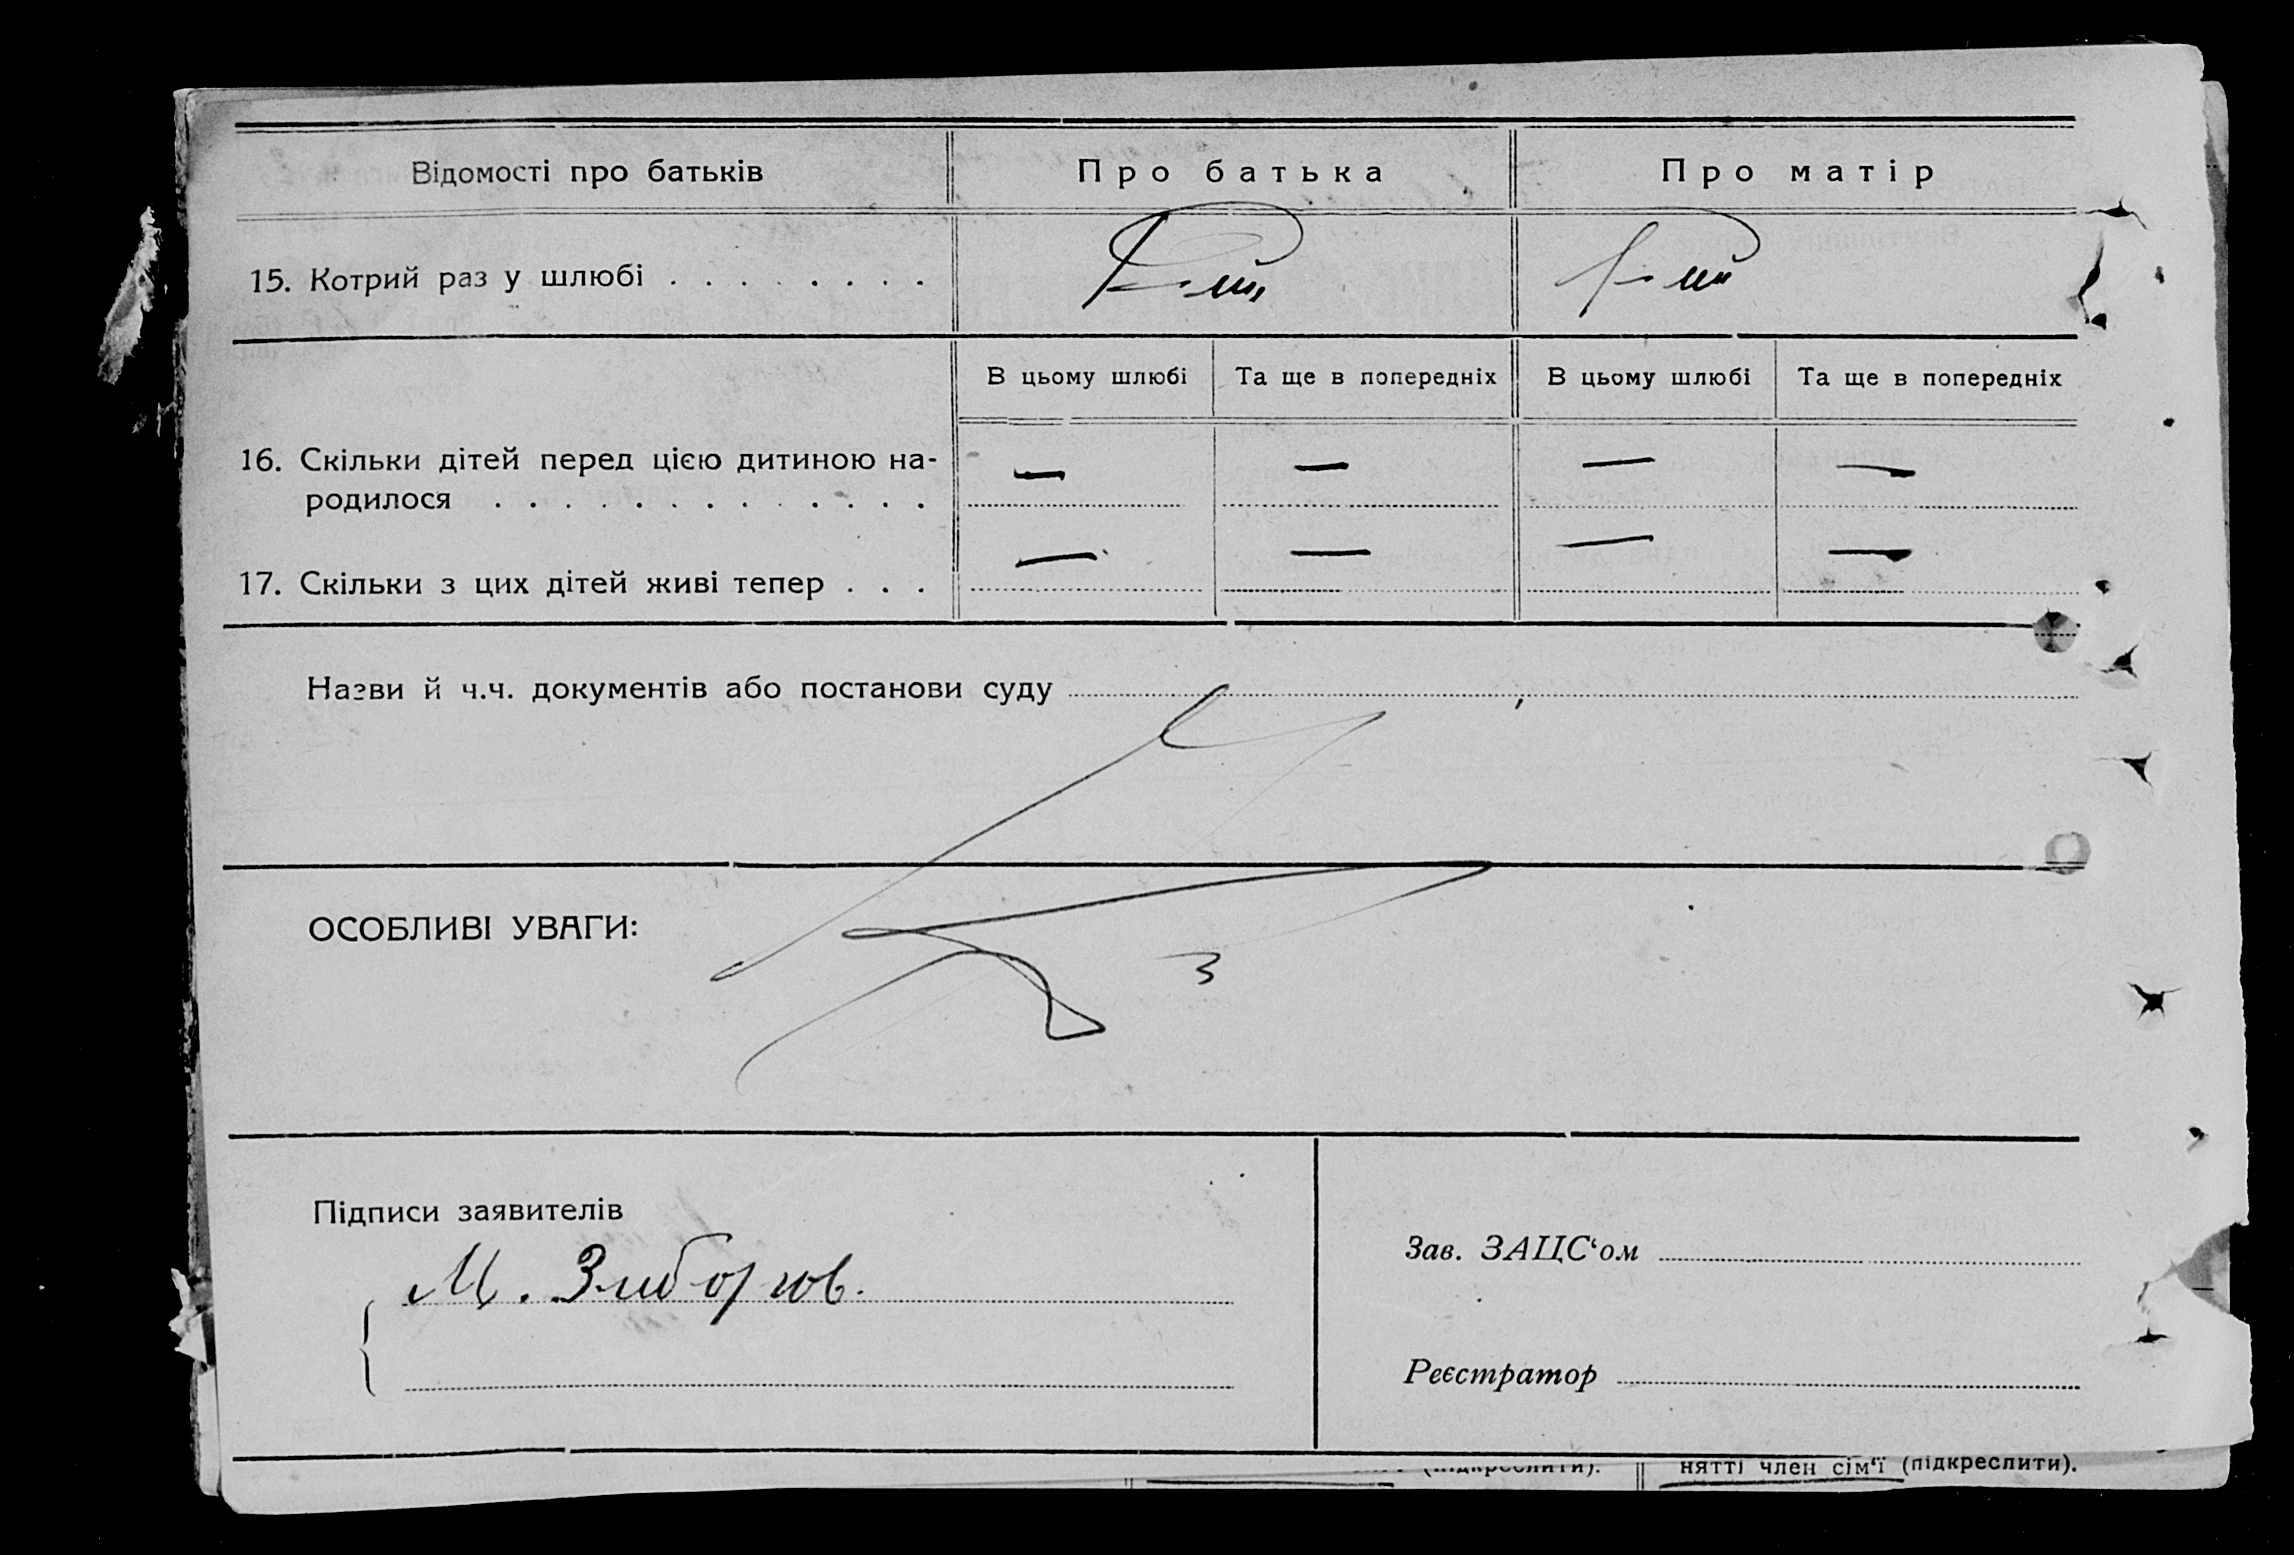 Відомості про батьків Про батька Про матір
15. Котрий раз у шлюбі . . . . . . . .
В цьому шлюбі Та ще в попередніх В цьому шлюбі Та ще в попередніх
16. Скільки дітей перед цією дитиною на- — — — —
родилося . . . . . . . . . . . . .
17. Скільки з цих дітей живі тепер . . . — — — —
Назви й ч.ч. документів або постанови суду
ОСОБЛИВІ УВАГИ:
Підписи заявителів
Зав. ЗАЦС‘ом
М.
Реєстратор
(підкреслити). нятті член сім‘ї (підкреслити).